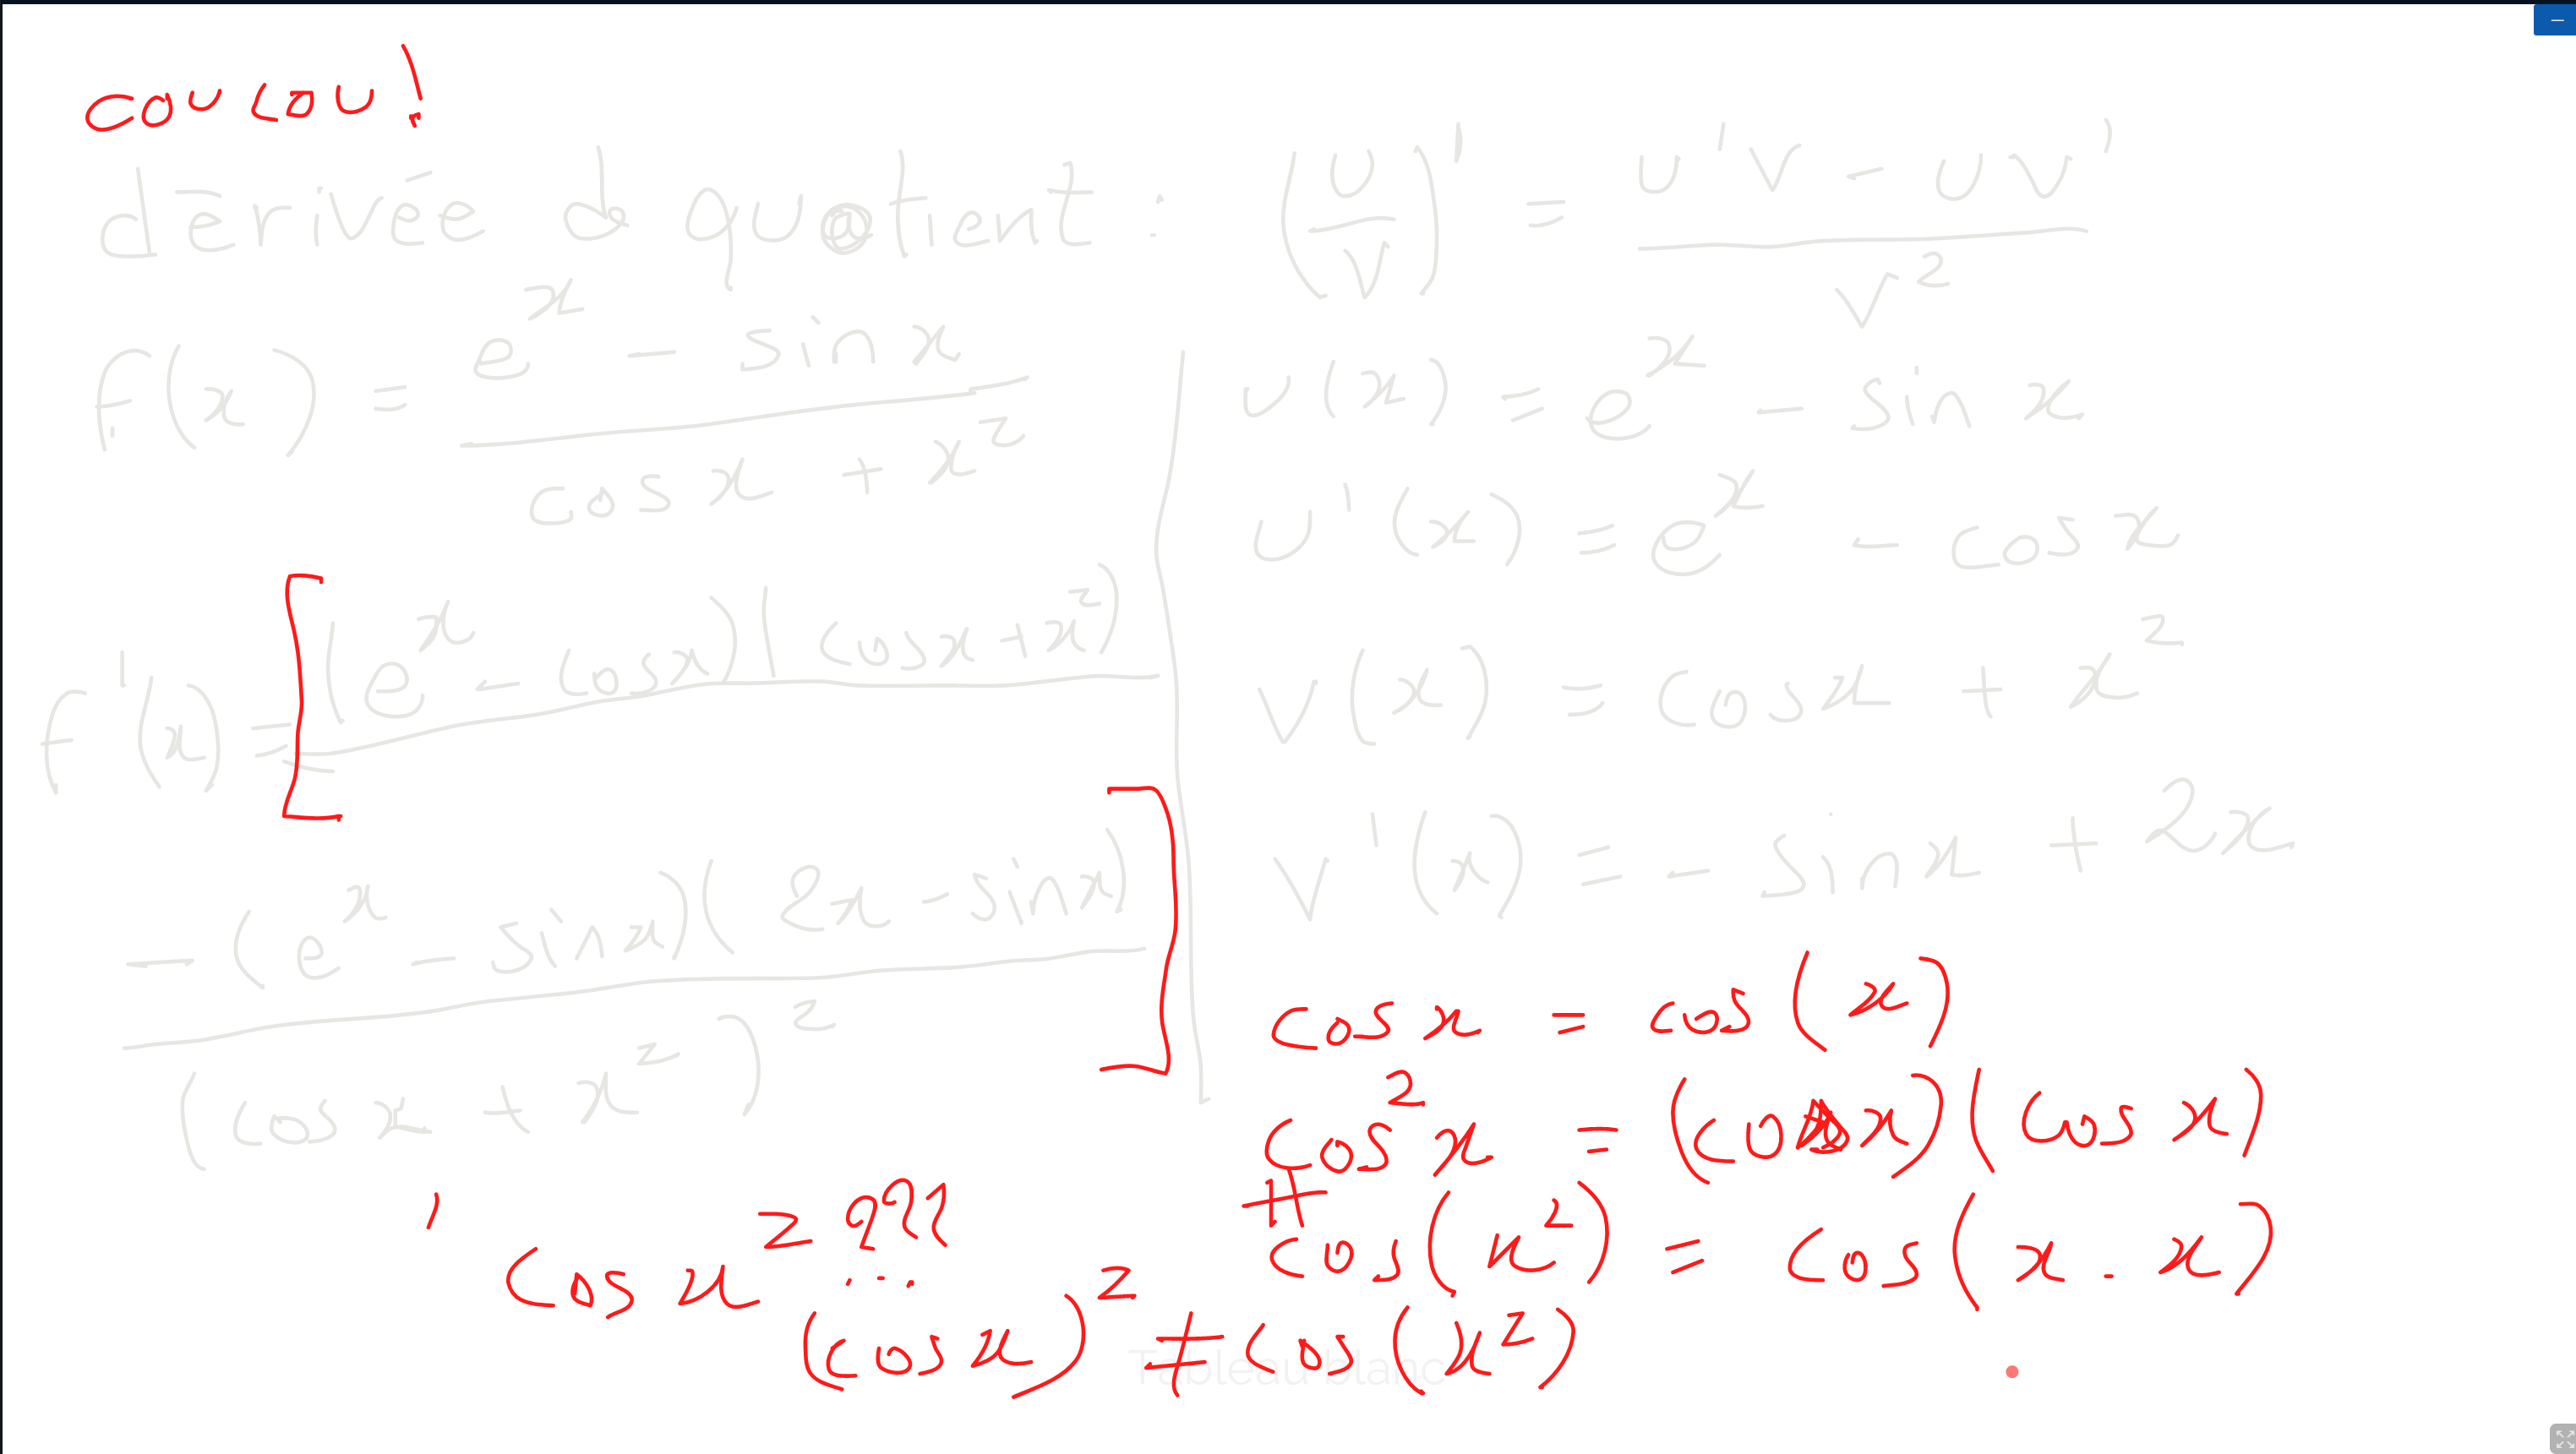 coucou!
dérivée de quotient : (u/v)' = (u'v - uv')/v²
f(x) = (e^x - sin x)/(cos x + x²)
u(x) = e^x - sin x
u'(x) = e^x - cos x
f'(x) = [(e^x - cos x)(cos x + x²)
v(x) = cos x + x²
- (e^x - sin x)(2x - sin x)]
(cos x + x²)²
v'(x) = - sin x + 2x
cos x = cos(x)
cos² x = (cos x)(cos x)
≠
cos(x²) = cos(x . x)
cos x² ???
(cos x)² ≠ cos(x²)
Tableau blanc